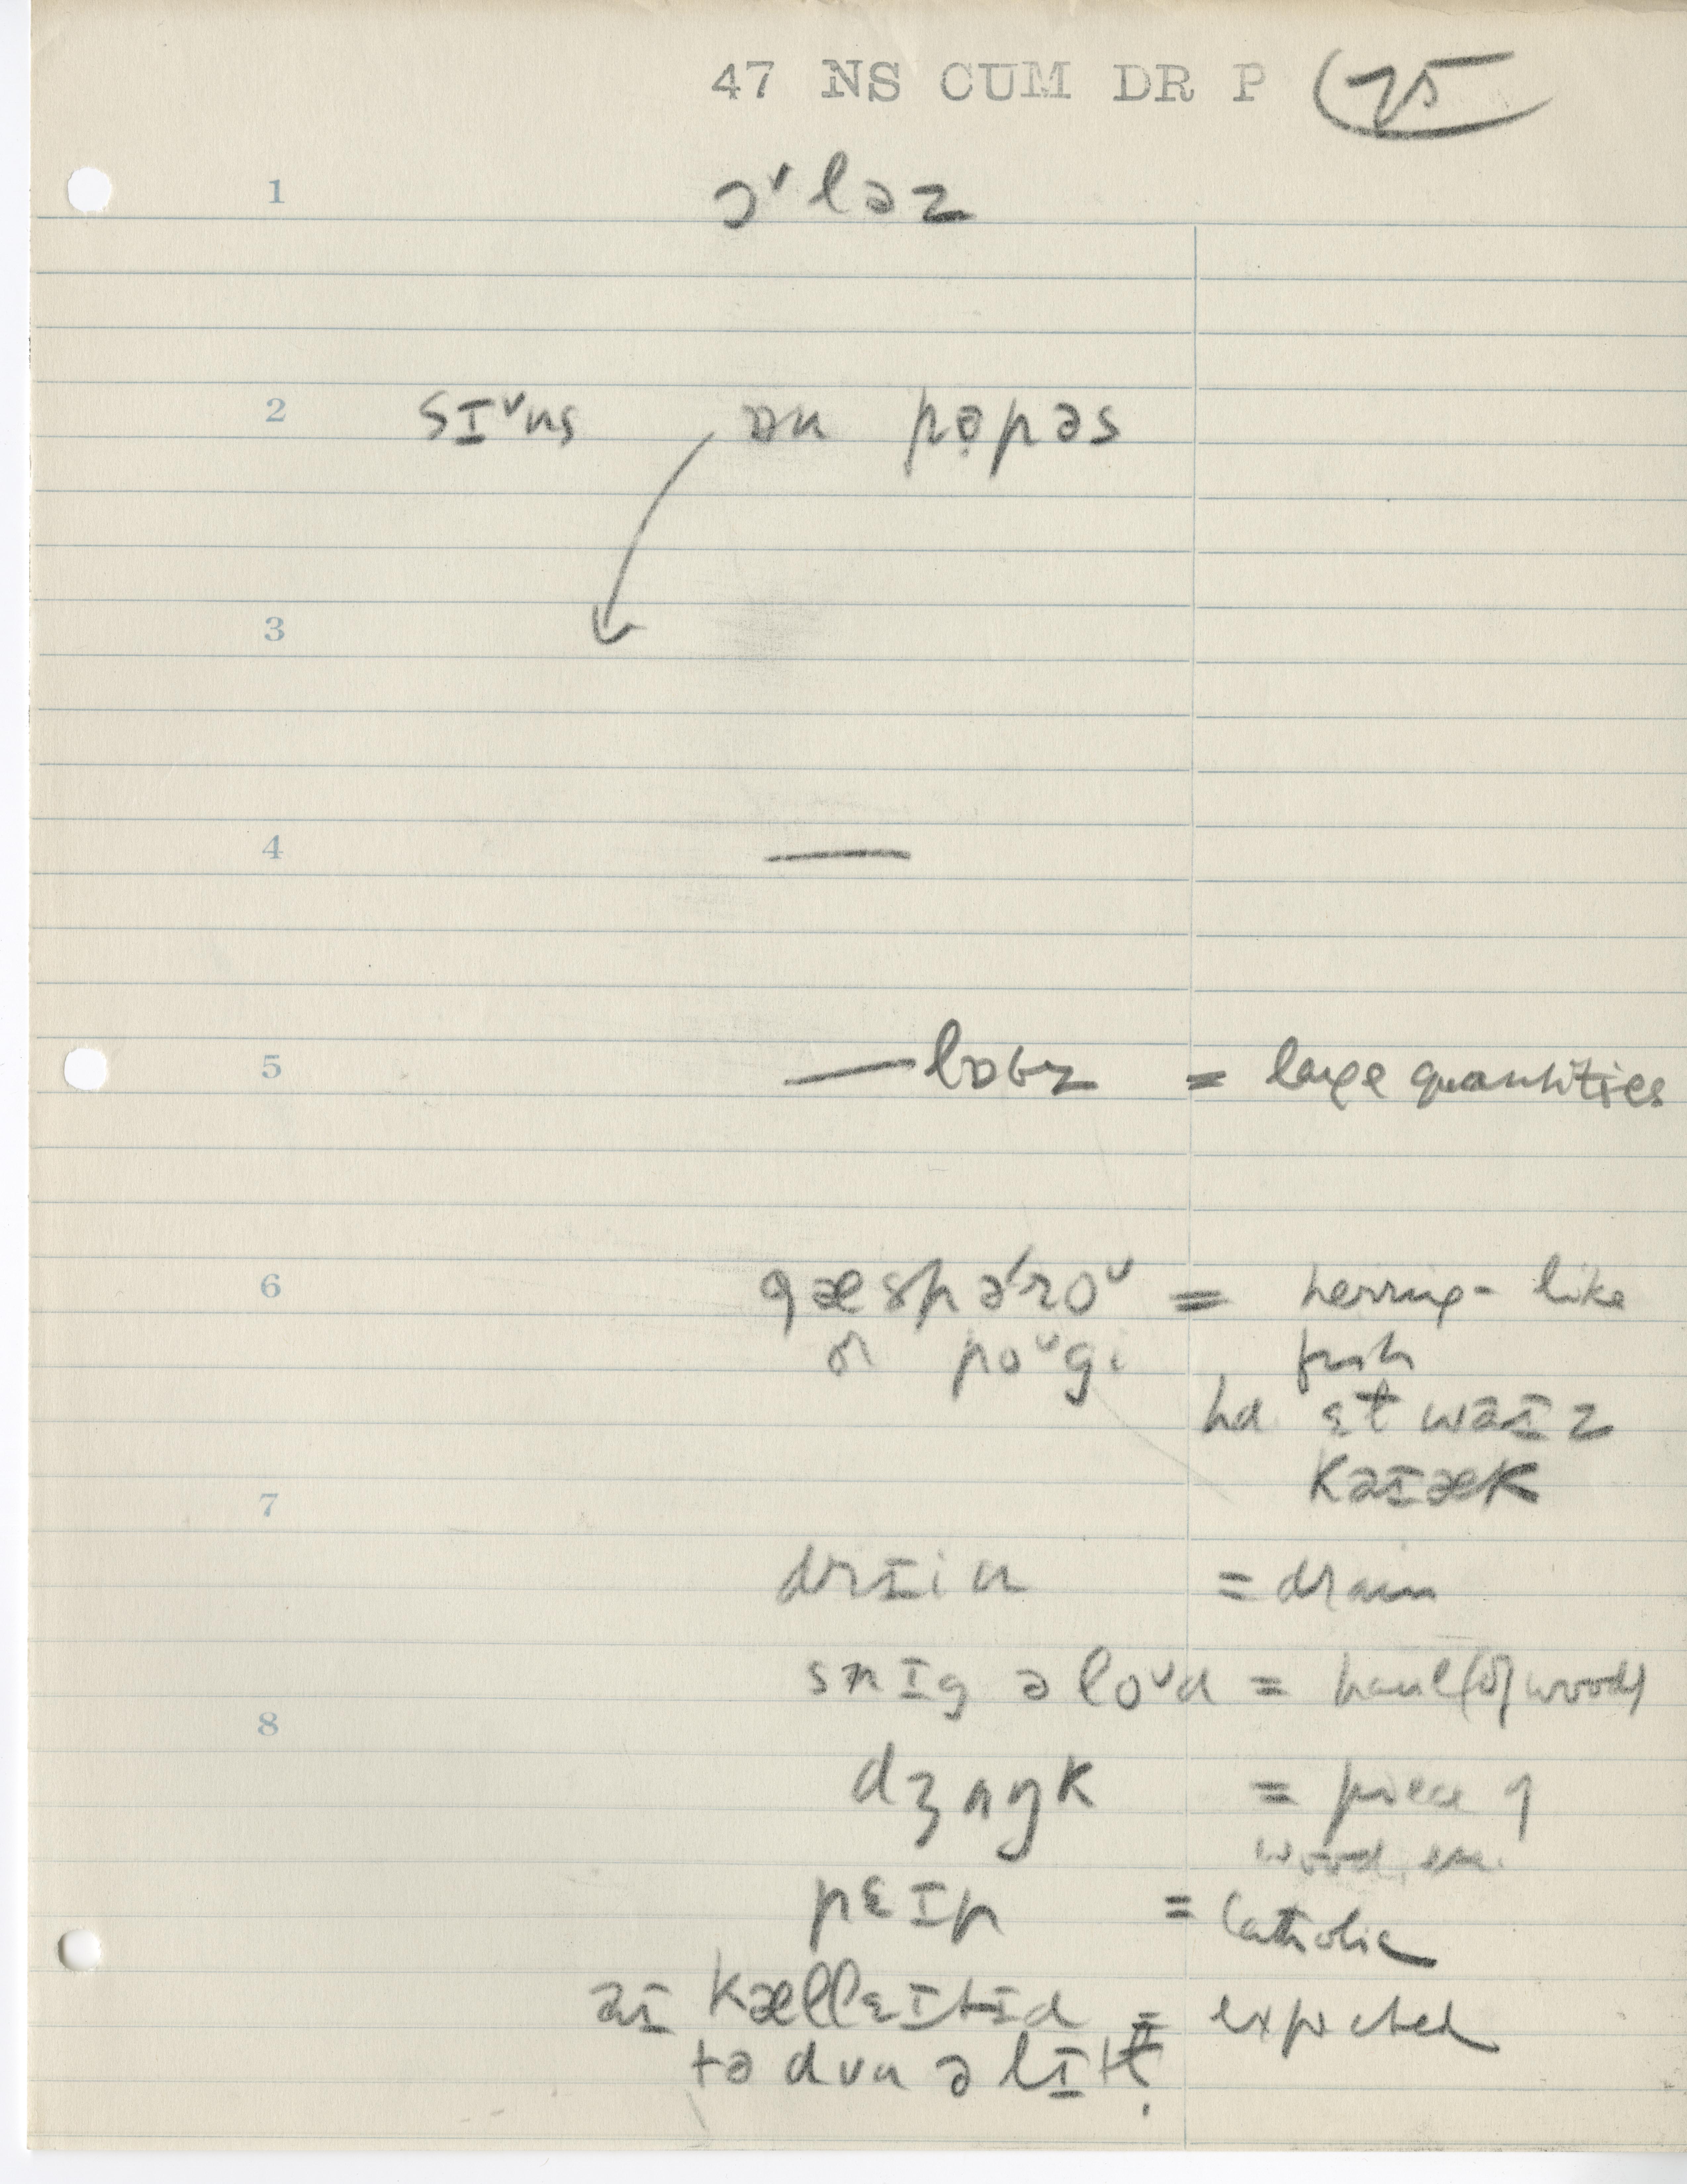 47 NS CUM DR P 75
1 ɔ˅ləz
2 sɪ˅ns ɒn pə̣pəs
3
4 —
5 — lɒbz = large quantities
6 gæspə́ro˅ = herring-like
or po˅gi fish
hd ɛt wəɪz
7 kəɪæk
drɪin = drain
snɪg ə lo˅d = haul (of wood)
8 dʒʌŋk = piece of
wood, etc.
pɛɪp = Catholic
əɪ kællɛɪtɪd = expected
tə dʊu ə lɪtḷ